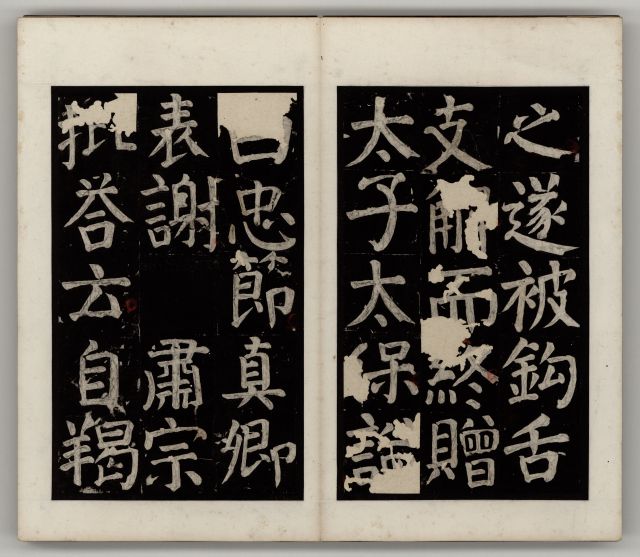 之遂被鉤舌
支解而終贈
太子太保謚
曰忠節真卿
表謝 肅宗
批荅云自羯